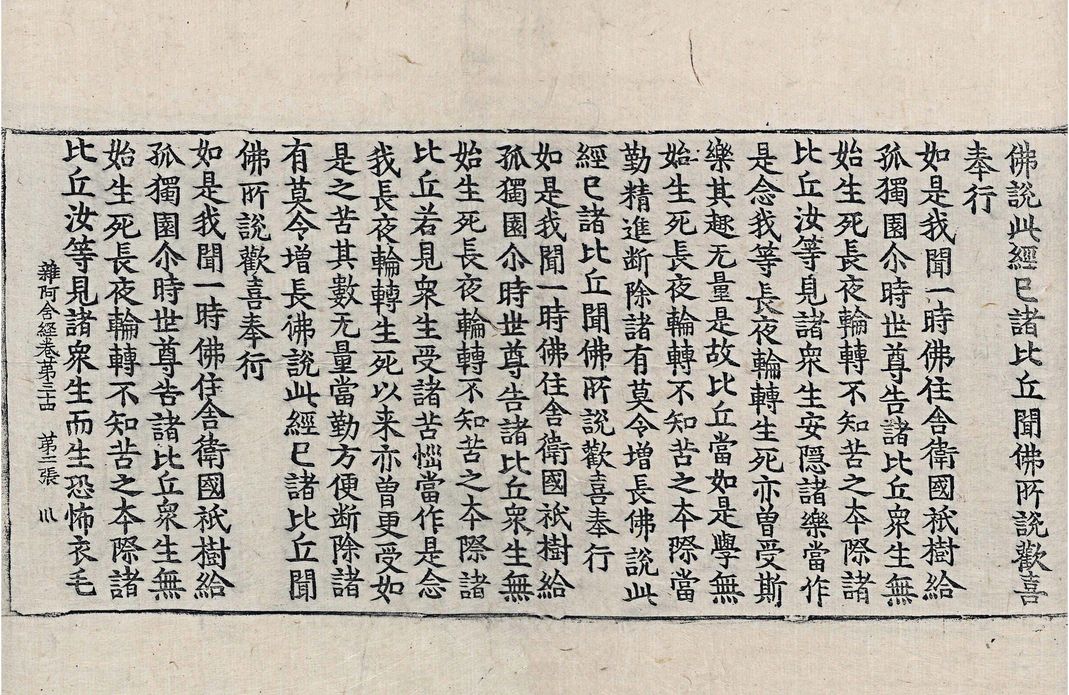 佛說此經已諸比丘聞佛所說歡喜
奉行
如是我聞一時佛住舍衛國祇樹給
孤獨園尒時世尊告諸比丘衆生無
始生死長夜輪轉不知苦之本際諸
比丘汝等見諸衆生安隱諸樂當作
是念我等長夜輪轉生死亦曽受斯
樂其趣无量是故比丘當如是學無
始生死長夜輪轉不知苦之本際當
勤精進断除諸有莫令增長佛說此
經已諸比丘聞佛所說歡喜奉行
如是我聞一時佛住舍衛國祇樹給
孤獨園尒時世尊告諸比丘衆生無
始生死長夜輪轉不知苦之本際諸
比丘若見衆生受諸苦惱當作是念
我長夜輪轉生死以来亦曽更受如
是之苦其數无量當勤方便断除諸
有莫令增長佛說此經已諸比丘聞
佛所說歡喜奉行
如是我聞一時佛住舍衛國祇樹給
孤獨園尒時世尊告諸比丘衆生無
始生死長夜輪轉不知苦之本際諸
比丘汝等見諸衆生而生恐怖衣毛
雜阿含経卷第三十四 第二張 川